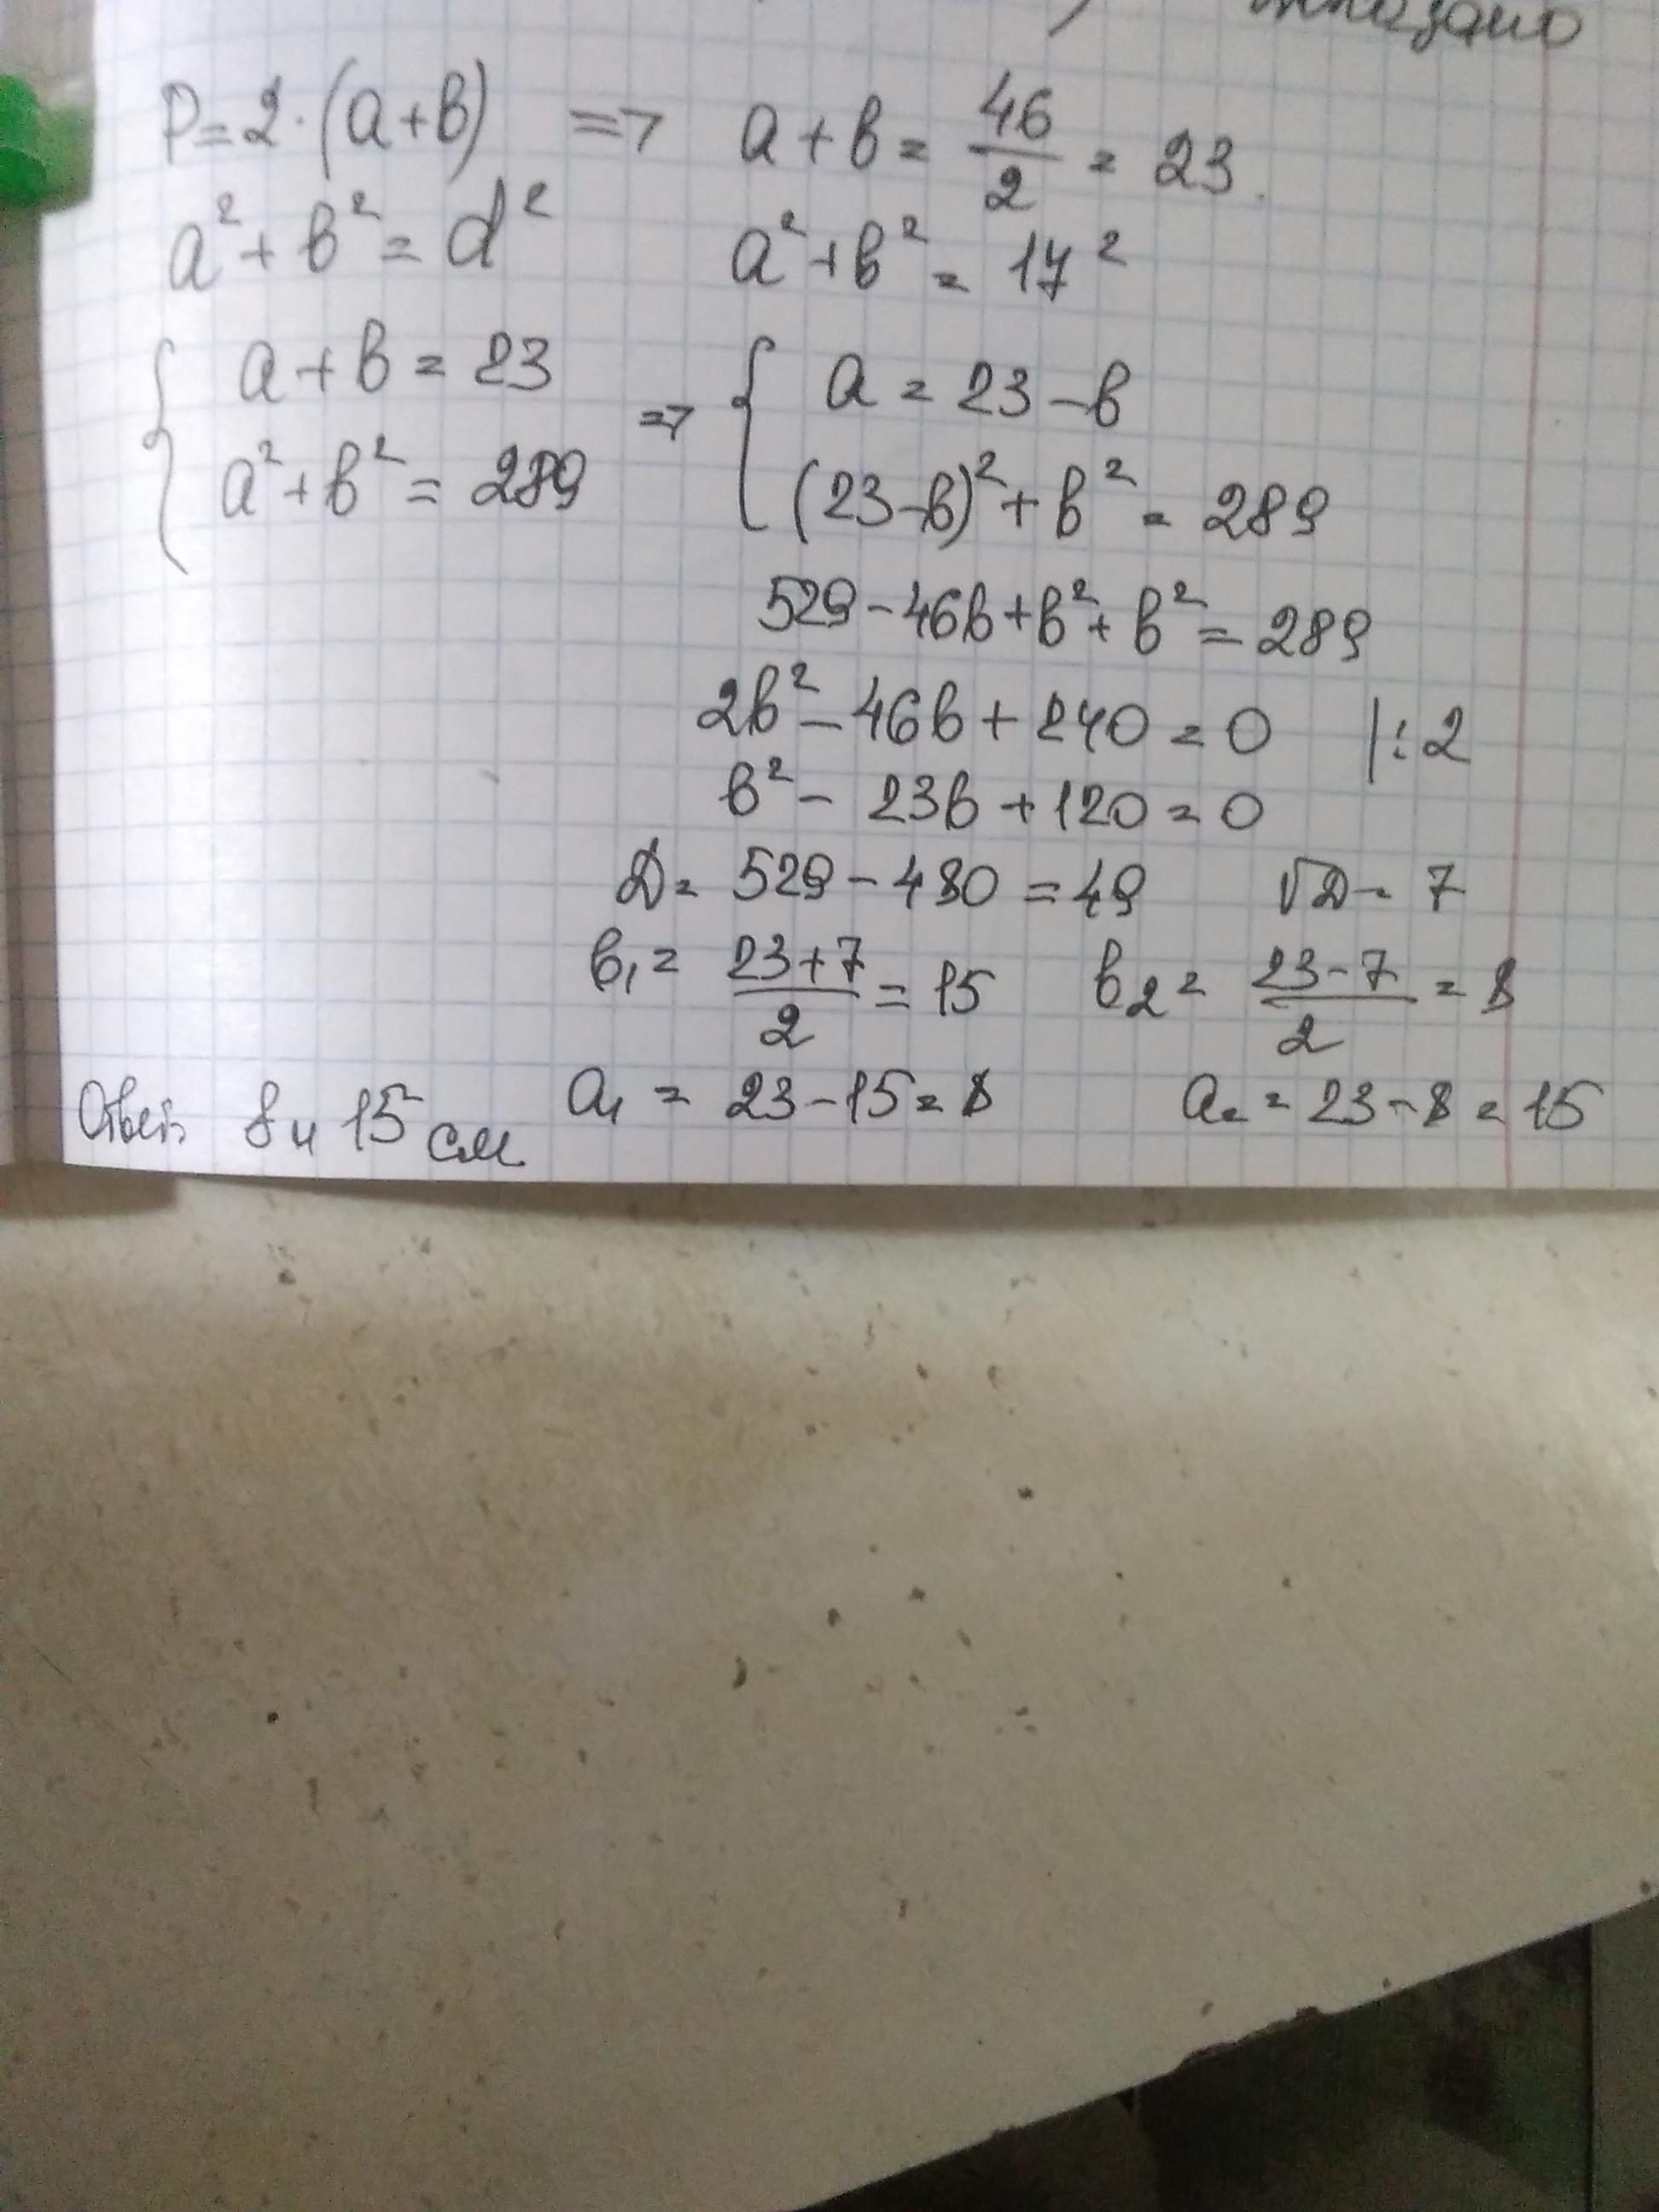 P=2·(a+b) => a+b = 46/2 = 23.
a²+b²=d² a²+b² = 17²
{ a+b = 23 => { a = 23-b
a²+b² = 289 (23-b)²+b² = 289
529-46b+b²+b² = 289
2b²-46b+240=0 |:2
b²-23b+120=0
D= 529-480=49 √D=7
b₁= 23+7/2 = 15 b₂= 23-7/2 = 8
a₁ = 23-15=8 a₂ = 23-8=15
Ответ: 8 и 15 см